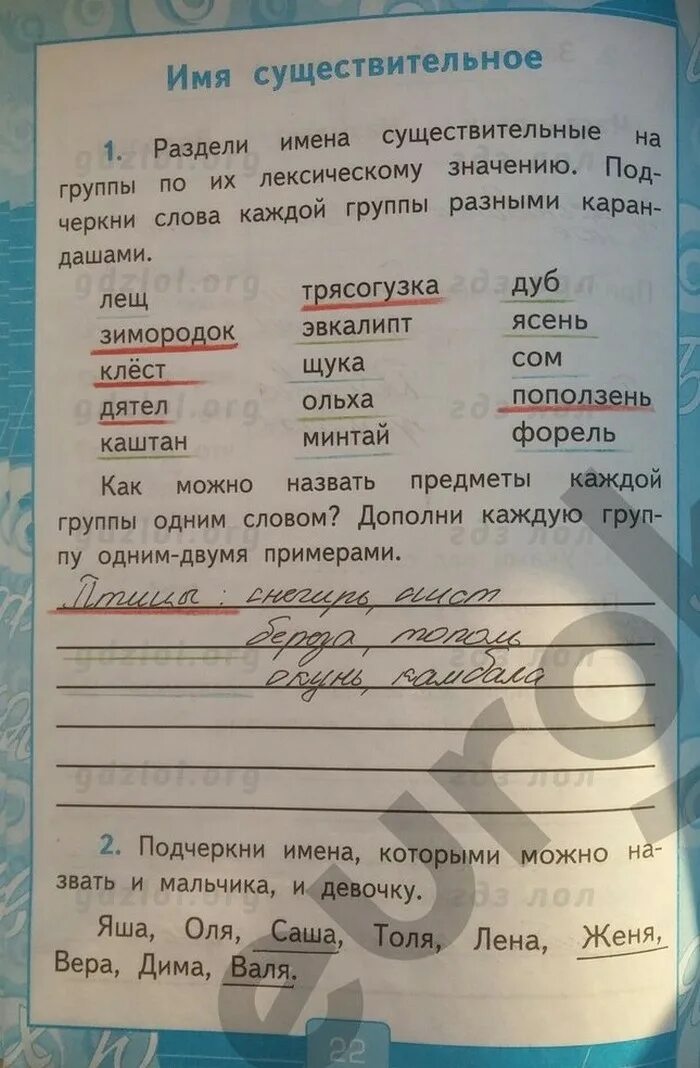 Имя существительное
1. Раздели имена существительные на
группы по их лексическому значению. Под-
черкни слова каждой группы разными каран-
дашами.
лещ трясогузка дуб
зимородок эвкалипт ясень
клёст щука сом
дятел ольха поползень
каштан минтай форель
Как можно назвать предметы каждой
группы одним словом? Дополни каждую груп-
пу одним-двумя примерами.
Птицы: снегирь, аист
береза, тополь
окунь, камбала
2. Подчеркни имена, которыми можно на-
звать и мальчика, и девочку.
Яша, Оля, Саша, Толя, Лена, Женя,
Вера, Дима, Валя.
22
gdzlol.org гдз лол
eurok